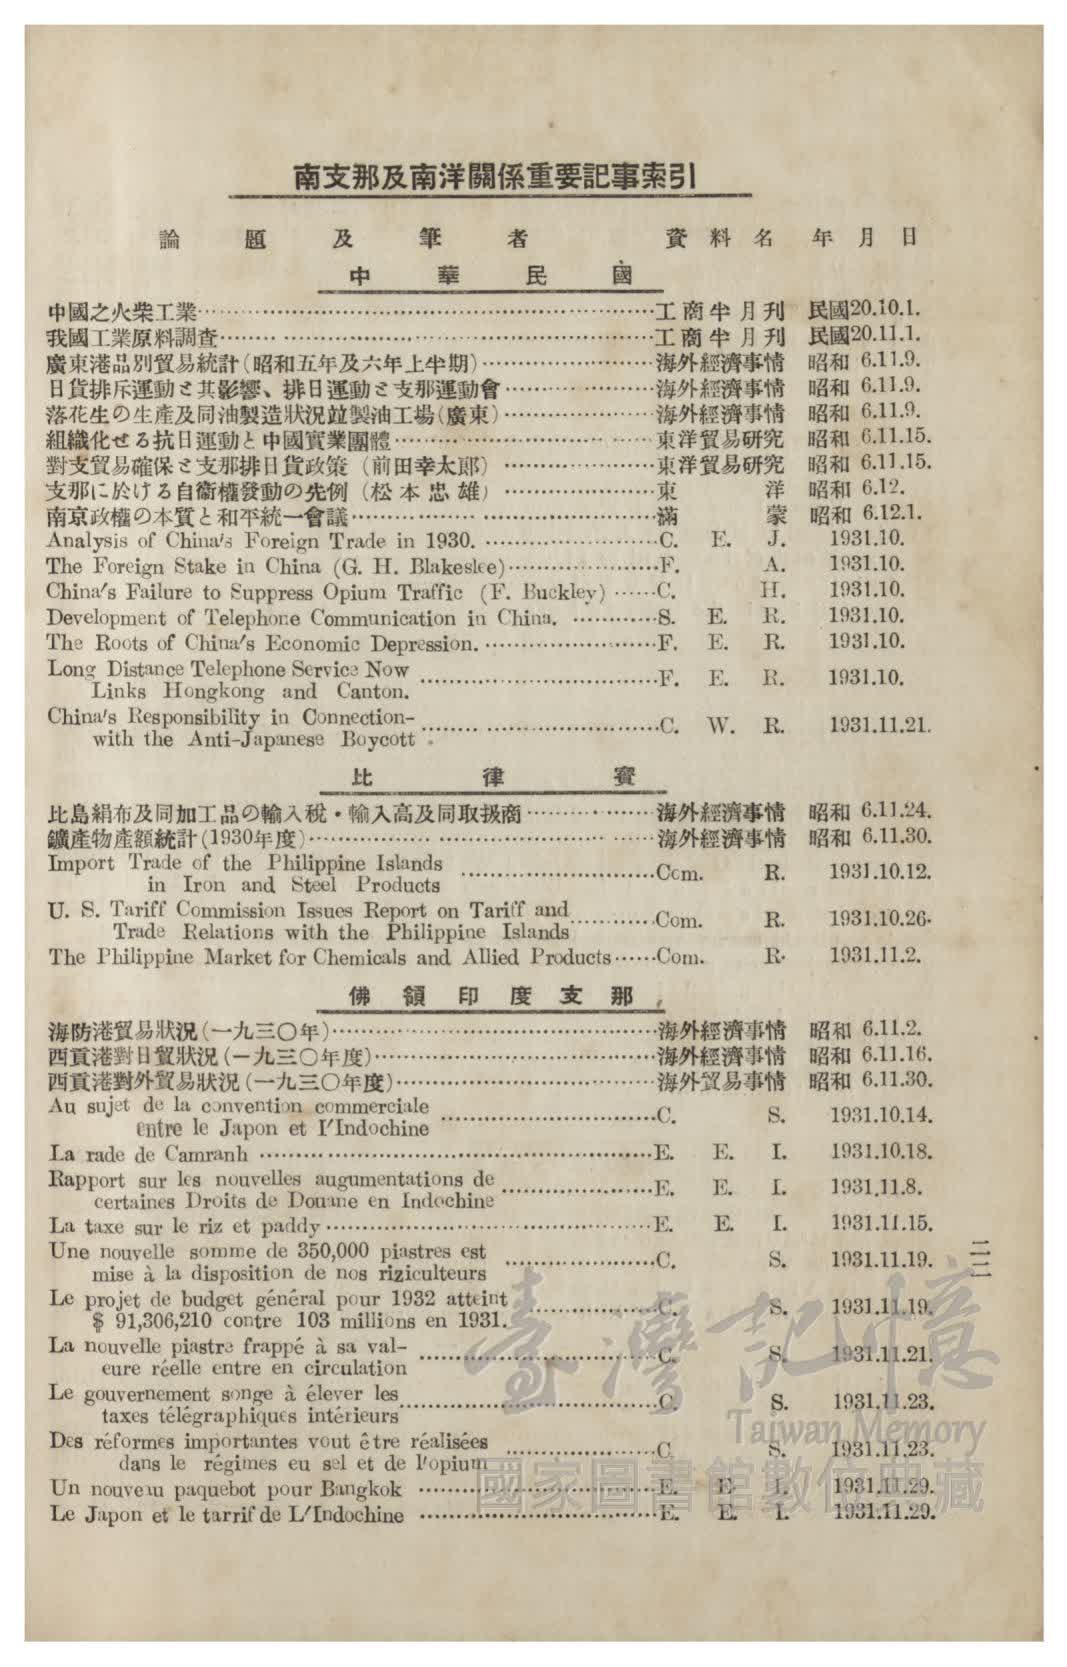 南支那及南洋關係重要記事索引
論題及筆者 資料名 年月日
中華民國
中國之火柴工業……工商半月刊 民國20.10.1.
我國工業原料調查……工商半月刊 民國20.11.1.
廣東港品別貿易統計(昭和五年及六年上半期)……海外經濟事情 昭和 6.11.9.
日貨排斥運動と其影響、排日運動と支那運動會……海外經濟事情 昭和 6.11.9.
落花生の生產及同油製造狀況竝製油工場(廣東)……海外經濟事情 昭和 6.11.9.
組織化せる抗日運動と中國實業團體……東洋貿易研究 昭和 6.11.15.
對支貿易確保と支那排日貨政策(前田幸太郎)……東洋貿易研究 昭和 6.11.15.
支那に於ける自衞權發動の先例(松本忠雄)……東洋 昭和 6.12.
南京政權の本質と和平統一會議……滿蒙 昭和 6.12.1.
Analysis of China's Foreign Trade in 1930. ……C. E. J. 1931.10.
The Foreign Stake in China (G. H. Blakeslee)……F. A. 1931.10.
China's Failure to Suppress Opium Traffic (F. Buckley) ……C. H. 1931.10.
Development of Telephone Communication in China. ……S. E. R. 1931.10.
The Roots of China's Economic Depression. ……F. E. R. 1931.10.
Long Distance Telephone Service Now
Links Hongkong and Canton. ……F. E. R. 1931.10.
China's Responsibility in Connection-
with the Anti-Japanese Boycott ……C. W. R. 1931.11.21.
比律賓
比島絹布及同加工品の輸入稅・輸入高及同取扱商……海外經濟事情 昭和 6.11.24.
鑛產物產額統計(1930年度)……海外經濟事情 昭和 6.11.30.
Import Trade of the Philippine Islands
in Iron and Steel Products ……Com. R. 1931.10.12.
U. S. Tariff Commission Issues Report on Tariff and
Trade Relations with the Philippine Islands ……Com. R. 1931.10.26.
The Philippine Market for Chemicals and Allied Products……Com. R. 1931.11.2.
佛領印度支那
海防港貿易狀況(一九三〇年)……海外經濟事情 昭和 6.11.2.
西貢港對日貿狀況(一九三〇年度)……海外經濟事情 昭和 6.11.16.
西貢港對外貿易狀況(一九三〇年度)……海外貿易事情 昭和 6.11.30.
Au sujet de la convention commerciale
entre le Japon et I'Indochine ……C. S. 1931.10.14.
La rade de Camranh ……E. E. I. 1931.10.18.
Rapport sur les nouvelles augumentations de
certaines Droits de Douane en Indochine ……E. E. I. 1931.11.8.
La taxe sur le riz et paddy……E. E. I. 1931.11.15.
Une nouvelle somme de 350,000 piastres est
mise à la disposition de nos riziculteurs ……C. S. 1931.11.19.
Le projet de budget général pour 1932 atteint
$ 91,306,210 contre 103 millions en 1931. ……C. S. 1931.11.19.
La nouvelle piastre frappé à sa val-
eure réelle entre en circulation ……C. S. 1931.11.21.
Le gouvernement songe à élever les
taxes télégraphiques intérieurs ……C. S. 1931.11.23.
Des réformes importantes vout être réalisées
dans le régimes eu sel et de l'opium ……C. S. 1931.11.23.
Un nouveau paquebot pour Bangkok ……E. E. I. 1931.11.29.
Le Japon et le tarrif de L'Indochine ……E. E. I. 1931.11.29.
臺灣記憶
Taiwan Memory
國家圖書館數位典藏